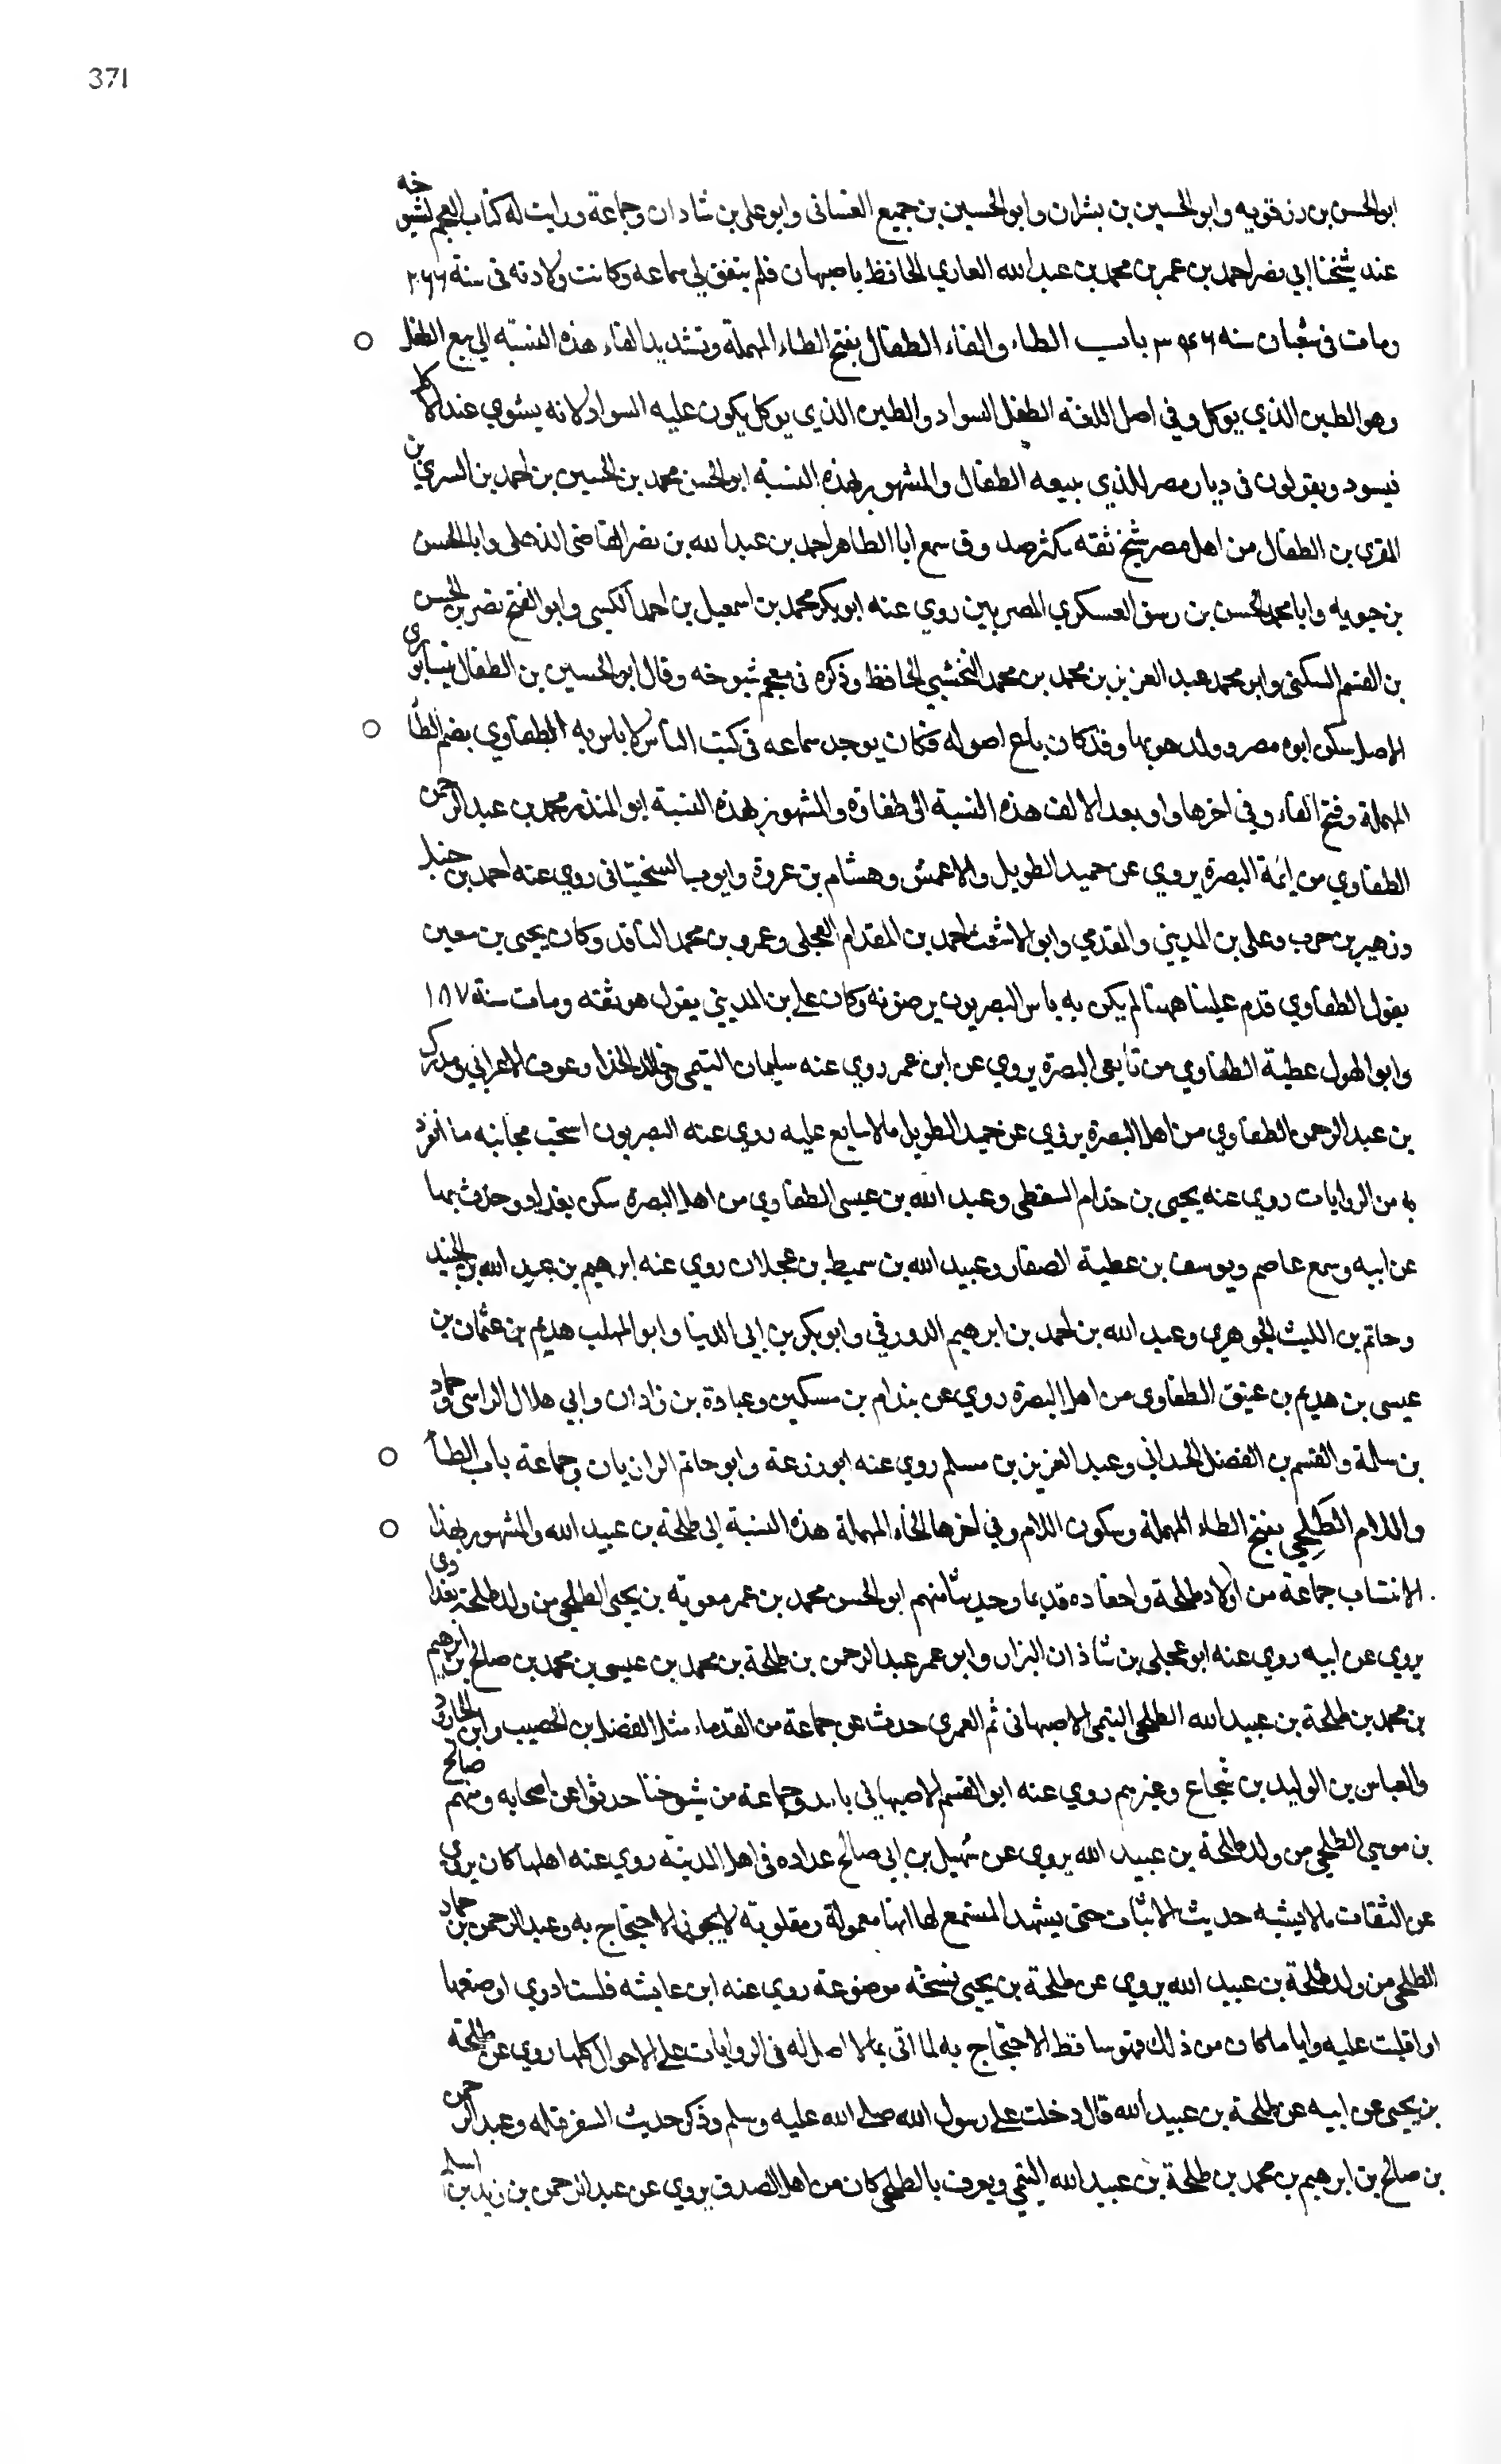 371
ابو الحسن بن رزقويه وابو الحسين بن بشران وابو الحسين بن جميع الغسانى وابو على بن شاذان وجماعة ورايت له كتاب المعجم لشيوخه
عند شيخنا ابي نصر احمد بن عمر بن محمد بن عبد الله الغازي الحافظ باصبهان فلم يتفق لي سماعه وكانت ولادته فى سنة
ومات فى شعبان سنه باب الطاء والفاء الطفال بفتح الطاء المهملة وتشديد الفاء هذه النسبة الي بيع الطفل
وهو الطين الذي يوكل وفي اصل اللغة الطفل السواد والطين الذي يوكل يكون عليه السواد لانه يشوي عند الاكل
فيسود ويقولون فى ديار مصر للذي يبيعه الطفال والمشهور بهذه النسبة ابو الحسن محمد بن الحسين بن احمد بن السري بن
المقرى بن الطفال من اهل مصر شيخ ثقه مكثر صدوق سمع ابا الطاهر احمد بن عبد الله بن نصر القاضى الذهلى وابا الحسن
بن حيويه وابا محمد الحسن بن رسق العسكري المصريين روي عنه ابو بكر محمد بن اسمعيل بن احمد وابو الفتح نصر بن الحسن
بن القسم السكنى وابو محمد عبد العزيز بن محمد بن محمد النخشبي الحافظ وذكره فى معجم شيوخه وقال ابو الحسين بن الطفال نيسابوري
الاصل سكن ابوه مصر وولد هو بها وقد كان باع اصوله فكان يوجد سماعه فى كتب الناس لا باس به الطفاوي بضم الطا
المهملة وفتح الفاء وفي اخرها واو بعد الالف هذه النسبة الى طفاوة والمشهور بهذه النسبة ابو المنذر محمد بن عبد الرحمن
الطفاوي من ائمة البصرة يروي عن حميد الطويل والاعمش وهشام بن عروة وايوب السختيانى روي عنه احمد بن حنبل
وزهير بن حرب وعلى بن المديني والمقدمي وابو الاشعث احمد بن المقدام العجلى وعمرو بن محمد الناقد وكان يحيى بن معين
يقول الطفاوي قدم علينا ههنا لم يكن به باس البصريون يرضونه وكان على بن المديني يقول هو ثقة ومات سنة ١٨٧
وابو الهول عطية الطفاوي من تابعى البصرة يروي عن ابن عمر روي عنه سليمان التيمي وخالد الحذا وعوف الاعرابي ومدرك
بن عبد الرحمن الطفاوي من اهل البصرة يروي عن حميد الطويل ما لا يتابع عليه روي عنه البصريون استحب مجانبه ما انفرد
به من الروايات روي عنه يحيى بن خذام السقطي وعبد الله بن عيسى الطفاوي من اهل البصرة سكن بغداد وحدث بها
عن ابيه وسمع عاصم ويوسف بن عطية الصفار وعبيد الله بن سميط بن عجلان روي عنه ابرهيم بن عبد الله بن الجنيد
وحاتم بن الليث الجوهري وعبد الله بن احمد بن ابرهيم الدورقي وابو بكر بن ابي الدنيا وابو المهلب هديم بن عثمان بن
عيسى بن هديم بن عنيق الطفاوى من اهل البصرة روي عن بن مسكين وعبادة بن زاذان وابي هلال الراسى وحماد
بن سلمة والقسم بن الفضل الحداني وعبد العزيز بن مسلم روي عنه ابو زرعة وابو حاتم الرازيان وجماعة باب الطا
واللام الطلحي بفتح الطاء المهملة وسكون اللام وفي اخرها الحاء المهملة هذه النسبة الى طلحة بن عبيد الله والمشهور بهذا
الانتساب جماعة من اولاد طلحة واحفاده قديما وحديثا منهم ابو الحسن محمد بن عمر معوية بن يحيى الطلحي من ولد طلحة بغدادى
يروي عن ابيه روي عنه ابو على بن شاذان البزاز وابو عمر عبد الرحمن بن طلحة بن محمد بن عيسى بن محمد بن صالح بن ابرهيم
بن محمد بن طلحة بن عبيد الله الطلحي التيمي الاصبهانى ثم العمري حدث عن جماعة من القدماء مثل الفضل بن الخصيب وابن الجارود
والعباس بن الوليد بن شجاع وغيرهم روي عنه ابو القسم الاصبهاني وجماعة من شيوخنا حدثوا عن اصحابه ومنهم صالح
بن موسى الطلحي من ولد طلحة بن عبيد الله يروي عن سهيل بن ابي صالح عداده فى اهل المدينة روي عنه اهلها كان يروي
عن الثقات ما لا يشبه حديث الاثبات حتى يشهد المستمع لها انها معمولة ومقلوبة لا يجوز الاحتجاج به وعبد الرحمن بن حماد
الطلحي من ولد طلحة بن عبيد الله يروي عن طلحة بن يحيى نسخة موضوعة روي عنه ابن عايشه فلست ادري اوضعها
او اقلبت عليه وايا ما كان من ذلك فهو ساقط الاحتجاج به لما اتى بما لا اصل له فى الروايات على الاحوال كلها روي عن طلحة
بن يحيى عن ابيه عن طلحة بن عبيد الله قال دخلت على رسول الله صلى الله عليه وسلم وذكر حديث السفرجله وعبد الرحمن
بن صالح بن ابرهيم بن محمد بن طلحة بن عبيد الله التيمي ويعرف بالطلحي كان من اهل الصدق يروي عن عبد الرحمن بن زيد بن اسلم